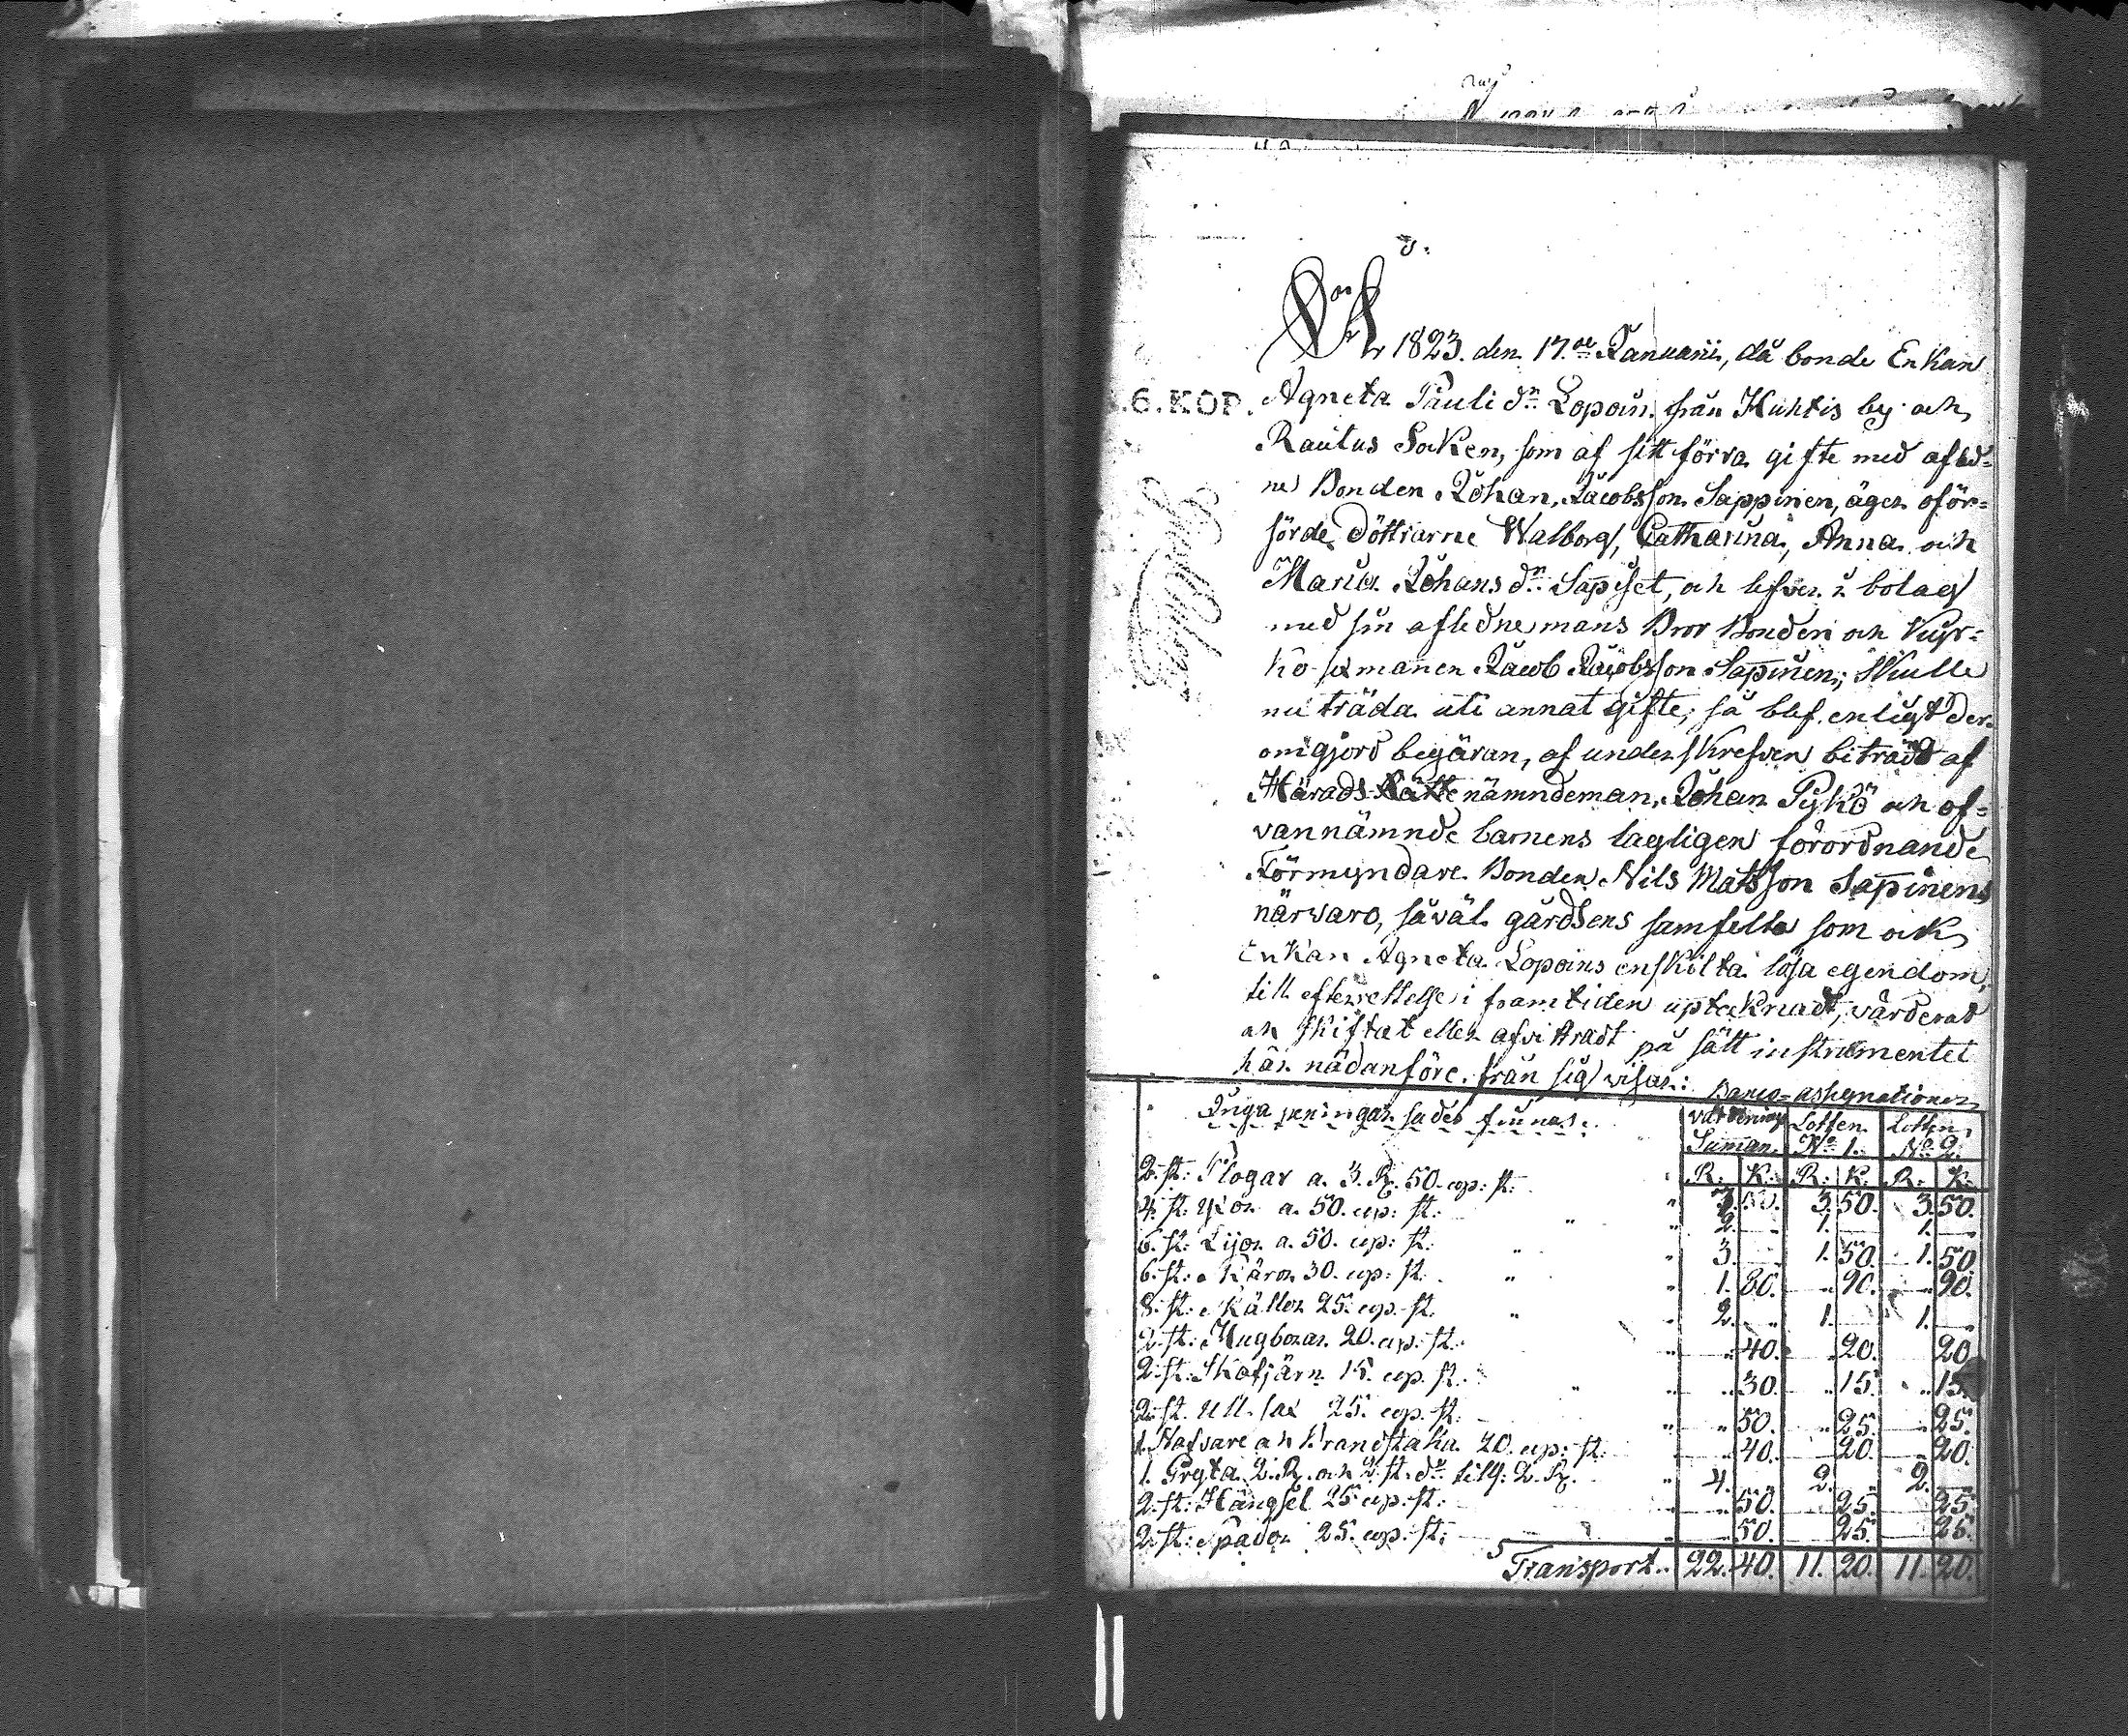 År 1823. den 17.de Januarii, då bonde Enkan
6. KOP.
Agneta Pauli dn Lopoin från Kuhtis by och
Rautus Socken, som af sitt förra gifte med afled=
ne Bonden Johan Jacobsson Sappinen, äger oför=
sörde döttrarne Walborg, Catharina, Anna och
Maria Johans dn Sapiset, och lefver i bolag
med sin aflednes mans Bror Bonden och Kyr=
ko-sexmannen Jacob Jacobsson Sapinen; skulle
nu träda uti annat gifte; så blef, enligt der
om gjord begäran, af underskrefven biträdt af
Härads Rätts nämndeman Johan Pykö och of=
vannämnde barnens lagligen förordnande
Förmyndare Bonden Nils Matsson Sapinens
närvaro, såväl gårdsens samfelta som ock
Enkan Agneta Lopoins enskilta lösa egendom,
till efterrettelse i framtiden uptecknadt, värderat
och skiftat eller afvittradt på sätt instrumentet
här nädanföre från sig visar:
Banco-assignationer
Inga peningar sades finnas.
Värdering Suman. Lotten No 1. Lotten No 2.
R. K. R. K. R. K.
2. st: Plogar a. 3. R. 50. cop: st: 7. 3. 50. 3. 50.
4. st: Yxor a. 50. cop: st: 2. 1. 1.
6. st: Lijor a. 50. cop: st: 3. 1. 50. 1. 50
6. st: Skäror 30. cop: st: 1. 80. 90. 90.
8. st: Skällor 25. cop. st. 2. 1. 1.
2. st: Hugborar 20. cop: st: 40. 20. 20
2. st: Skafjärn 15. cop. st. 30. 15. 15.
2. st. Ull sax 25. cop. st. 50. 25. 25.
1. Nafvare och brandstaka 20. cop: st: 40. 20. 20.
1. Gryta 2. R. och 2. st. do till: 2. R. 4. 2. 2.
2. st: Hängsel 25. cop: st: 50. 25 25
2. st: Spador 25. cop: st: 50. 25. 25.
Transport. 22. 40. 11. 20. 11. 20.